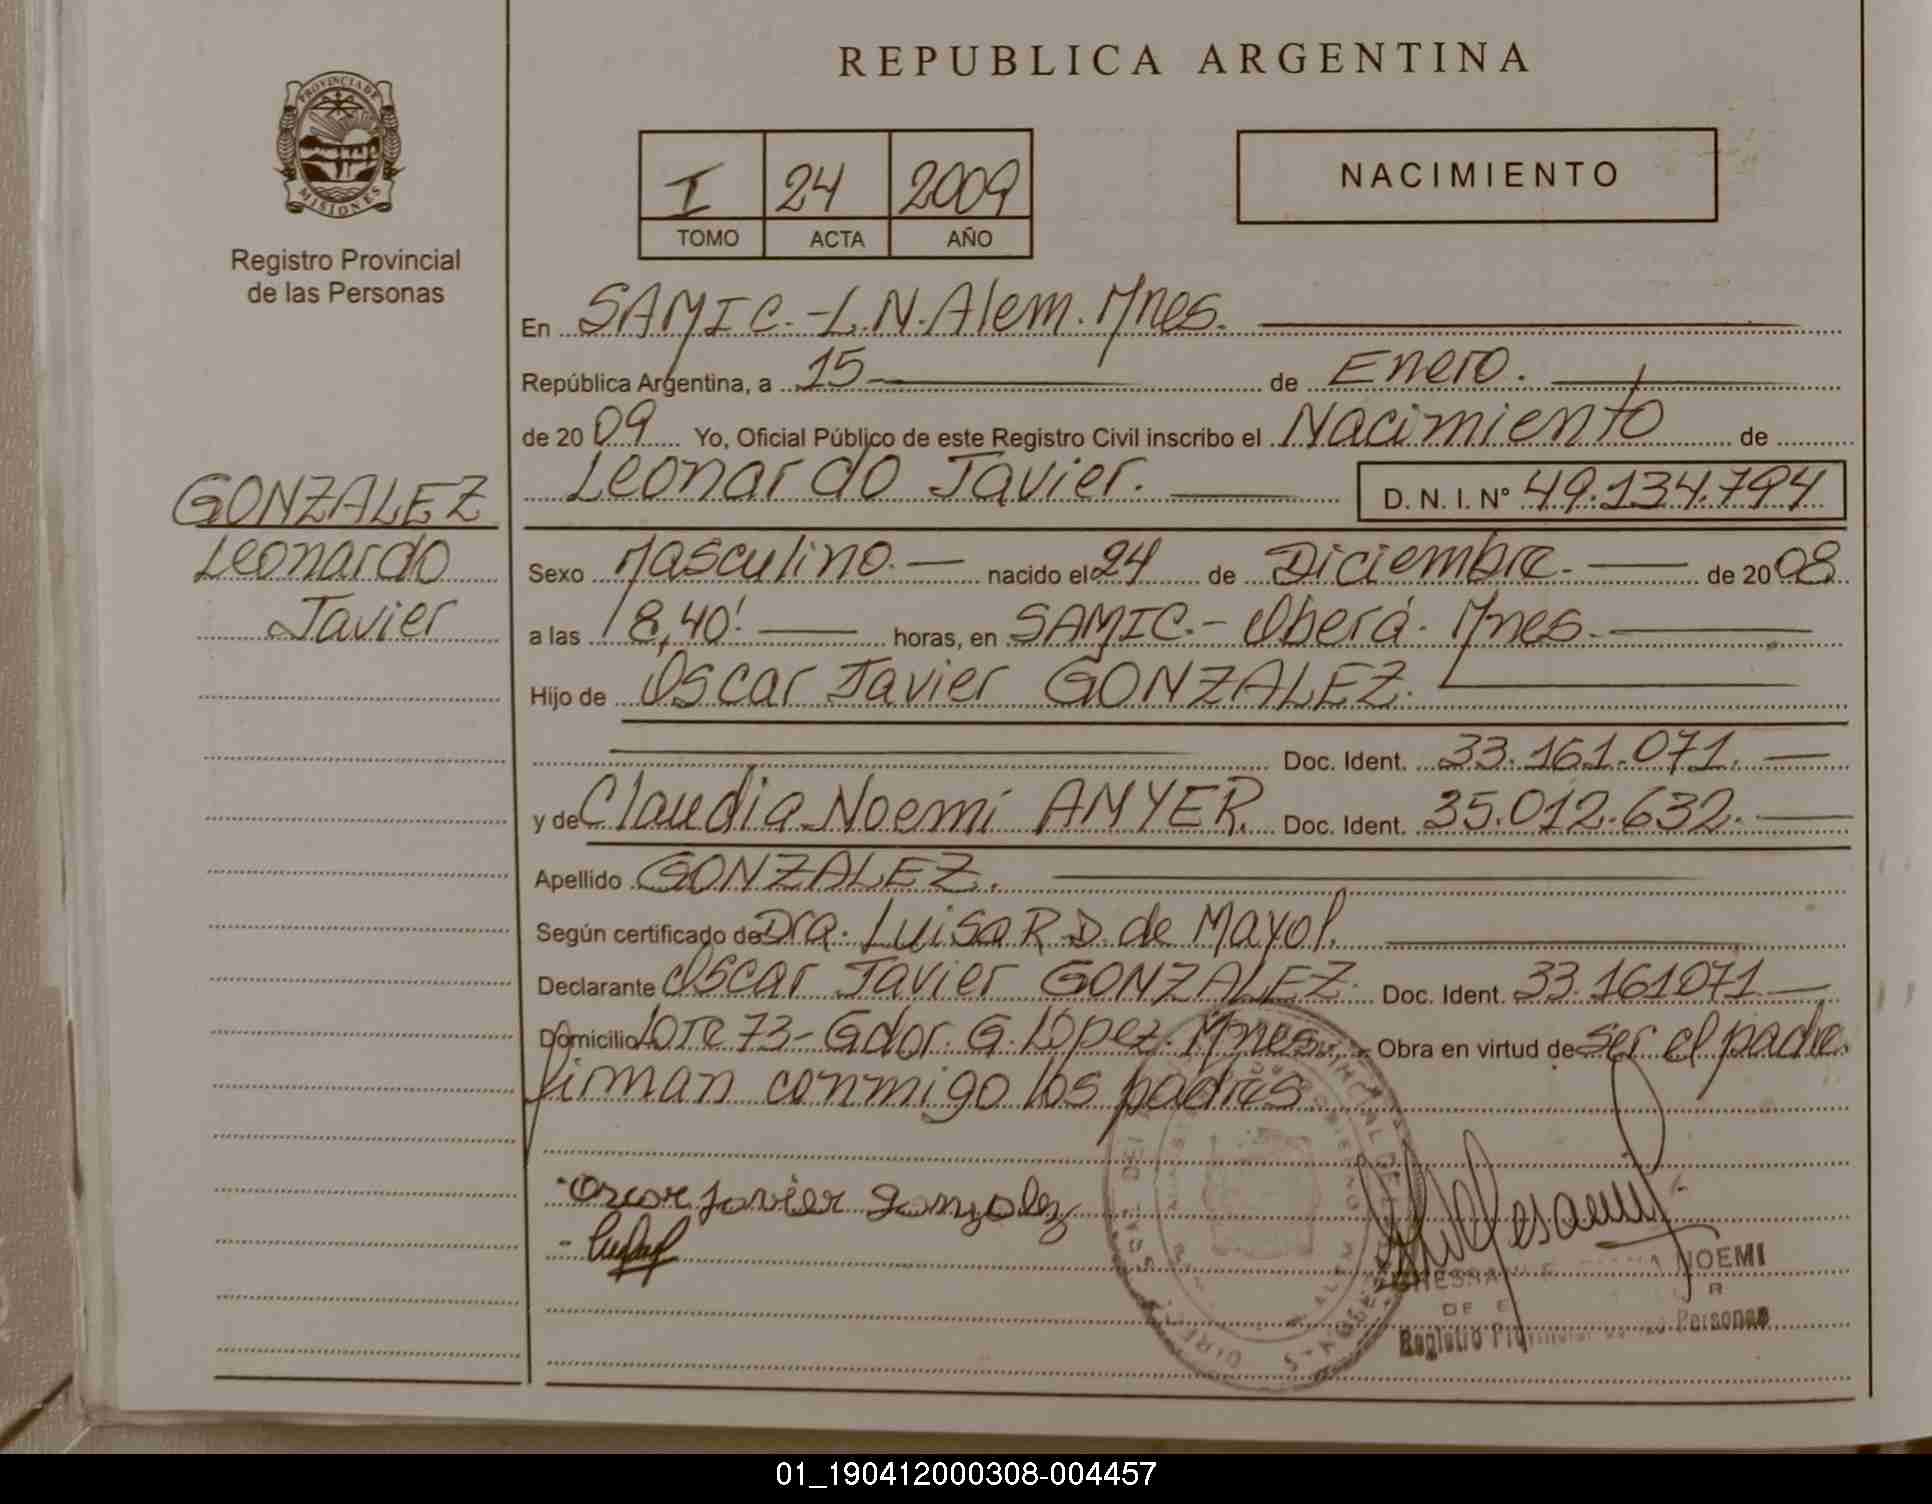 REPUBLICA ARGENTINA
PROVINCIA DE
MISIONES
Registro Provincial
de las Personas
I 24 2009
TOMO ACTA AÑO
NACIMIENTO
En SAMIC.-L.N.Alem.Mnes.
República Argentina, a 15 de Enero.
de 20 09 Yo, Oficial Público de este Registro Civil inscribo el Nacimiento de
Leonardo Javier. D. N. I. N° 49.134.794
GONZALEZ
Leonardo
Javier
Sexo Masculino. nacido el 24 de Diciembre. de 20 08
a las 8,40'. horas, en SAMIC.- Oberá. Mnes.
Hijo de Oscar Javier GONZALEZ.
Doc. Ident. 33.161.071.
y de Claudia Noemi ANYER. Doc. Ident. 35.012.632.
Apellido GONZALEZ.
Según certificado de Dra. Luisa R D. de Mayol.
Declarante Oscar Javier GONZALEZ. Doc. Ident. 33.161071
Domicilio Lote 73- Gdor. G. López. Mnes. Obra en virtud de ser el padre.
firman conmigo los padres.
Oscar Javier Gonzalez
NOEMI
Registro Personas
01_190412000308-004457